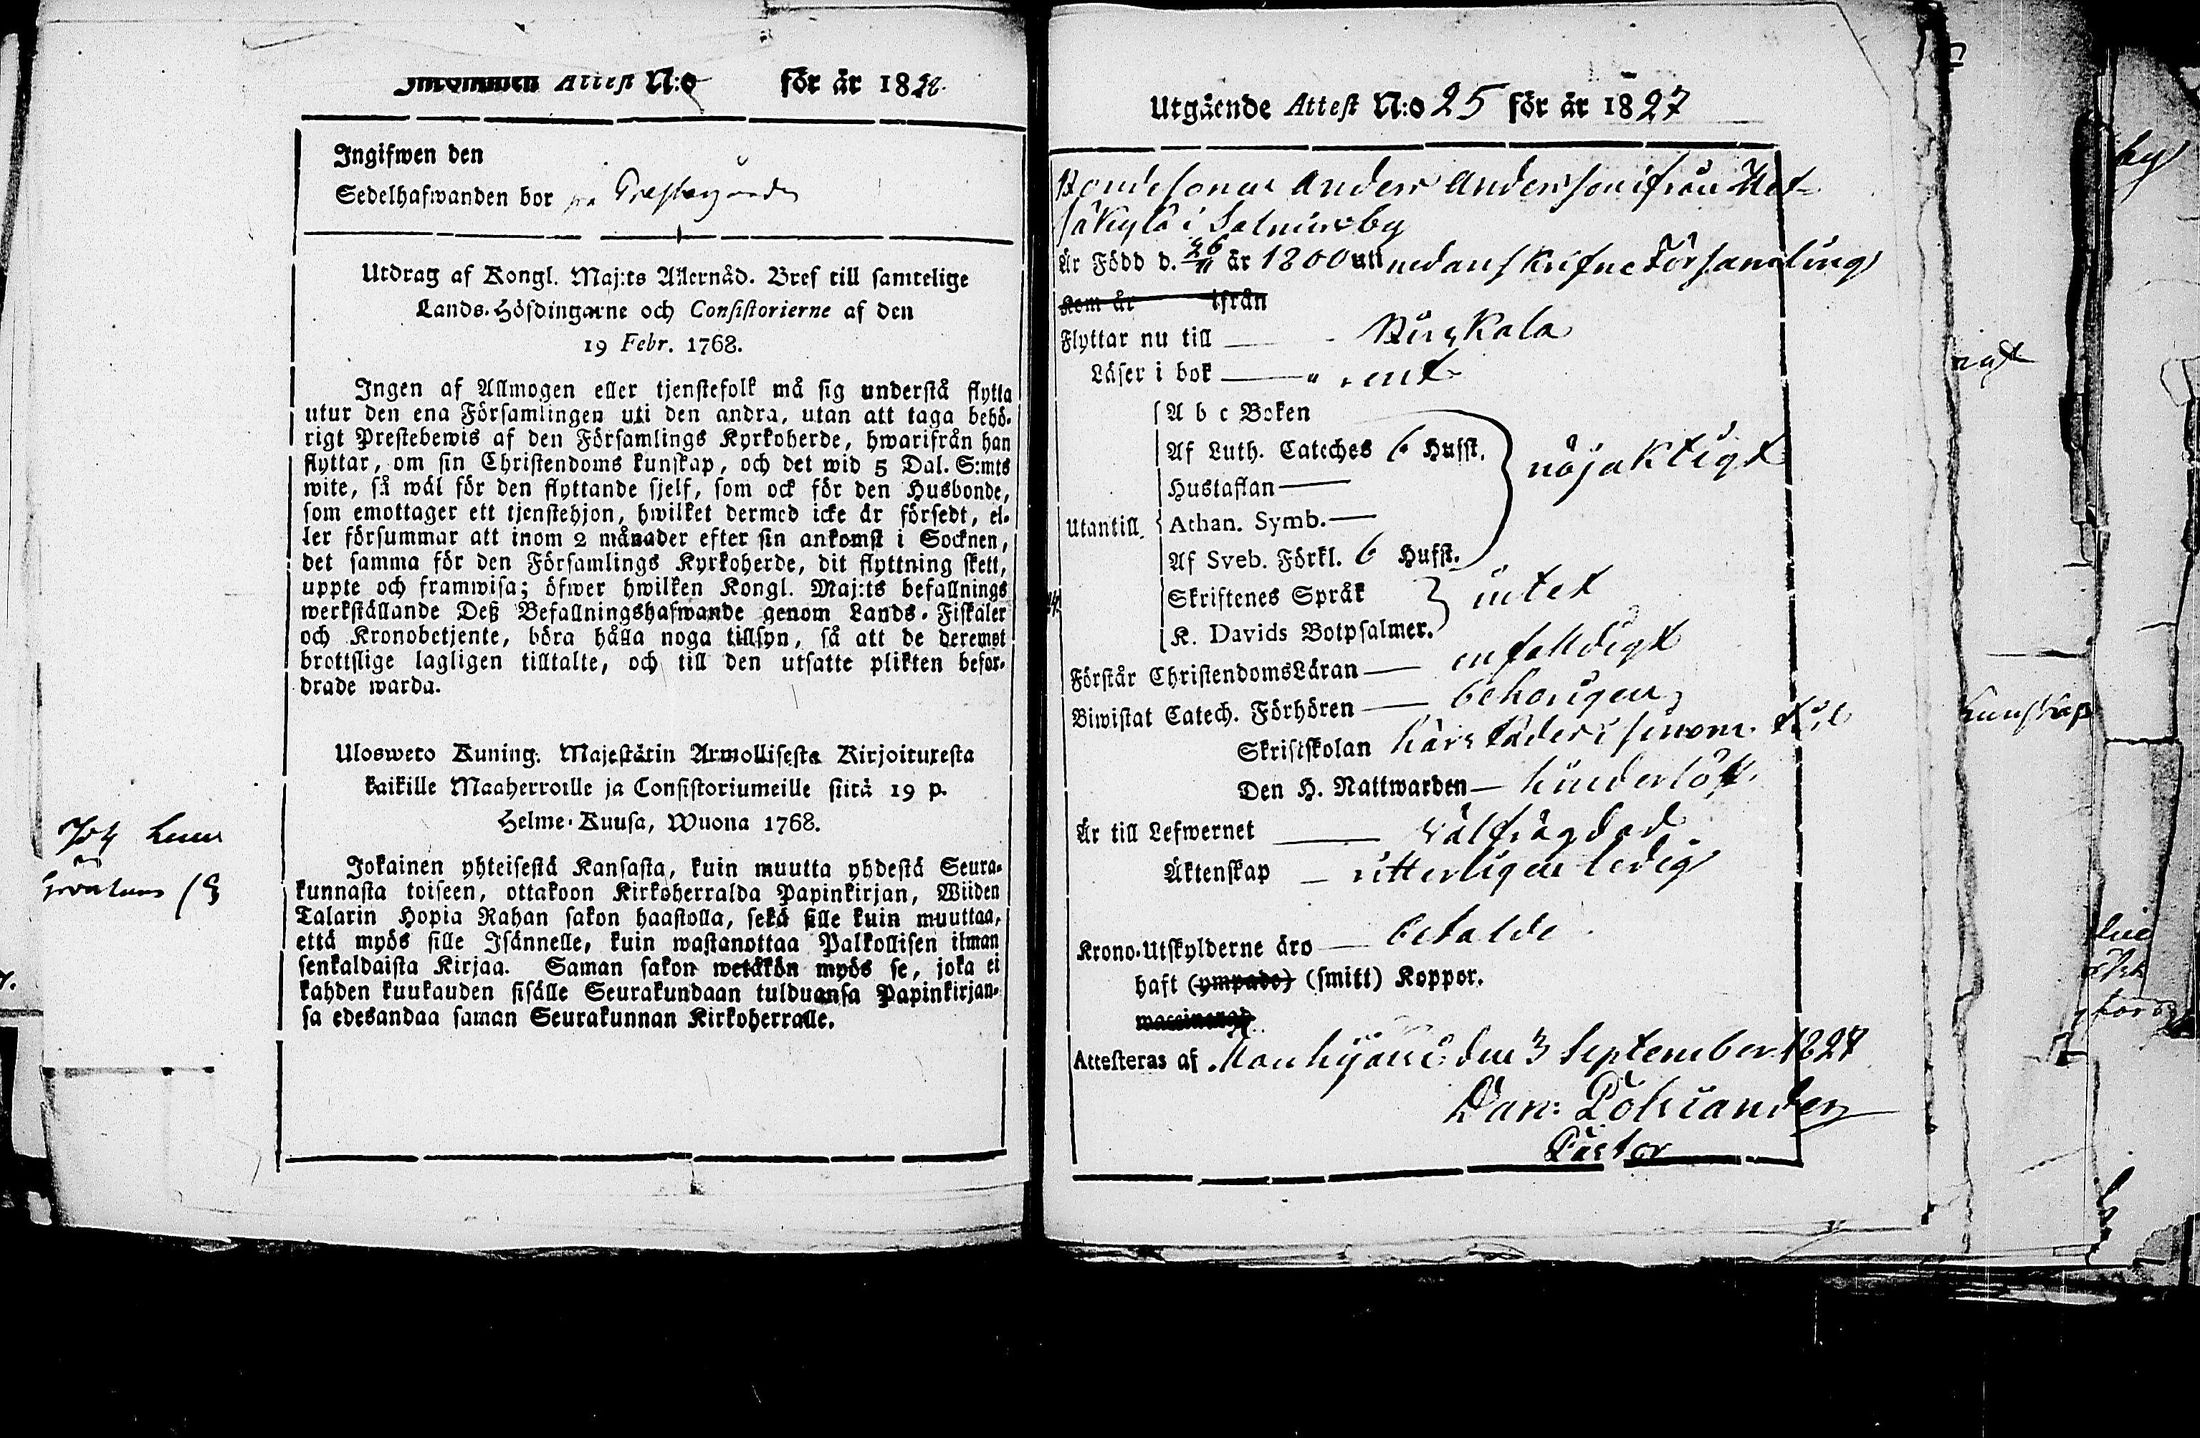 Inkommen Attest N:o för år 1828.
Ingifwen den
Sedelhafwanden bor på Prestegården
Utdrag af Kongl. Maj:ts Allernåd. Bref till samtelige
Lands-Höfdingarne och Consistorierne af den
19 Febr. 1768.
Ingen af Allmogen eller tjenstefolk må sig understå flytta
utur den ena Församlingen uti den andra, utan att taga behö-
rigt Prestebewis af den Församlings Kyrkoherde, hwarifrån han
flyttar, om sin Christendoms kunskap, och det wid 5 Dal. S:mts
wite, så wäl för den flyttande sjelf, som ock för den Husbonde,
som emottager ett tjenstehjon, hwilket dermed icke är försedt, el-
ler försummar att inom 2 månader efter sin ankomst i Socknen,
det samma för den Församlings Kyrkoherde, dit flyttning skett,
uppte och framwisa; öfwer hwilken Kongl. Maj:ts befallnings
werkställande Deß Befallningshafwande genom Lands-Fiskaler
och Kronobetjente, böra hålla noga tillsyn, så att de deremot
brottslige lagligen tilltalte, och till den utsatte plikten befor-
drade warda.
Ulosweto Kuning. Majestätin Armollisesta Kirjoituxesta
kaikille Maaherroille ja Consistoriumeille siitä 19 p.
Helme-Kuusa, Wuona 1768.
Jokainen yhteisestä Kansasta, kuin muutta yhdestä Seura-
kunnasta toiseen, ottakoon Kirkoherralda Papinkirjan, Wiiden
Talarin Hopia Rahan sakon haastolla, sekä sille kuin muuttaa,
että myös sille Isännelle, kuin wastanottaa Palkollisen ilman
senkaldaista Kirjaa. Saman sakon wetäkön myös se, joka ei
kahden kuukauden sisälle Seurakundaan tulduansa Papinkirjan-
sa edesandaa saman Seurakunnan Kirkoherralle.
Utgående Attest N:o 25 för år 1827
Bondesonen Anders Andersson ifrån Het-
säkylä i Salmis by
Är Född d. 26/11 år 1800 uti nedanskrifne Församling
Kom år ifrån
Flyttar nu till Birkala
Läser i bok rent
A b c Boken
Af Luth. Cateches 6 Hufst. nöjaktigt
Hustaflan
Utantill Athan. Symb.
Af Sveb. Förkl. 6 Hufst.
Skriftenes Språk intet
K. Davids Botpsalmer.
Förstår ChristendomsLäran enfaldigt
Biwistat Catech. Förhören behörigen
Skriftskolan härstädes i sinom tid
Den H. Nattwarden hinderlöst
Är till Lefwernet välfrägdad
Äktenskap ytterligen ledig
Krono-Utskylderne äro betalde
haft (ympade) (smitt) Koppor.
Attesteras af Mouhijärvi den 3 September 1827
Dan: Polviander
Pastor
kunskap